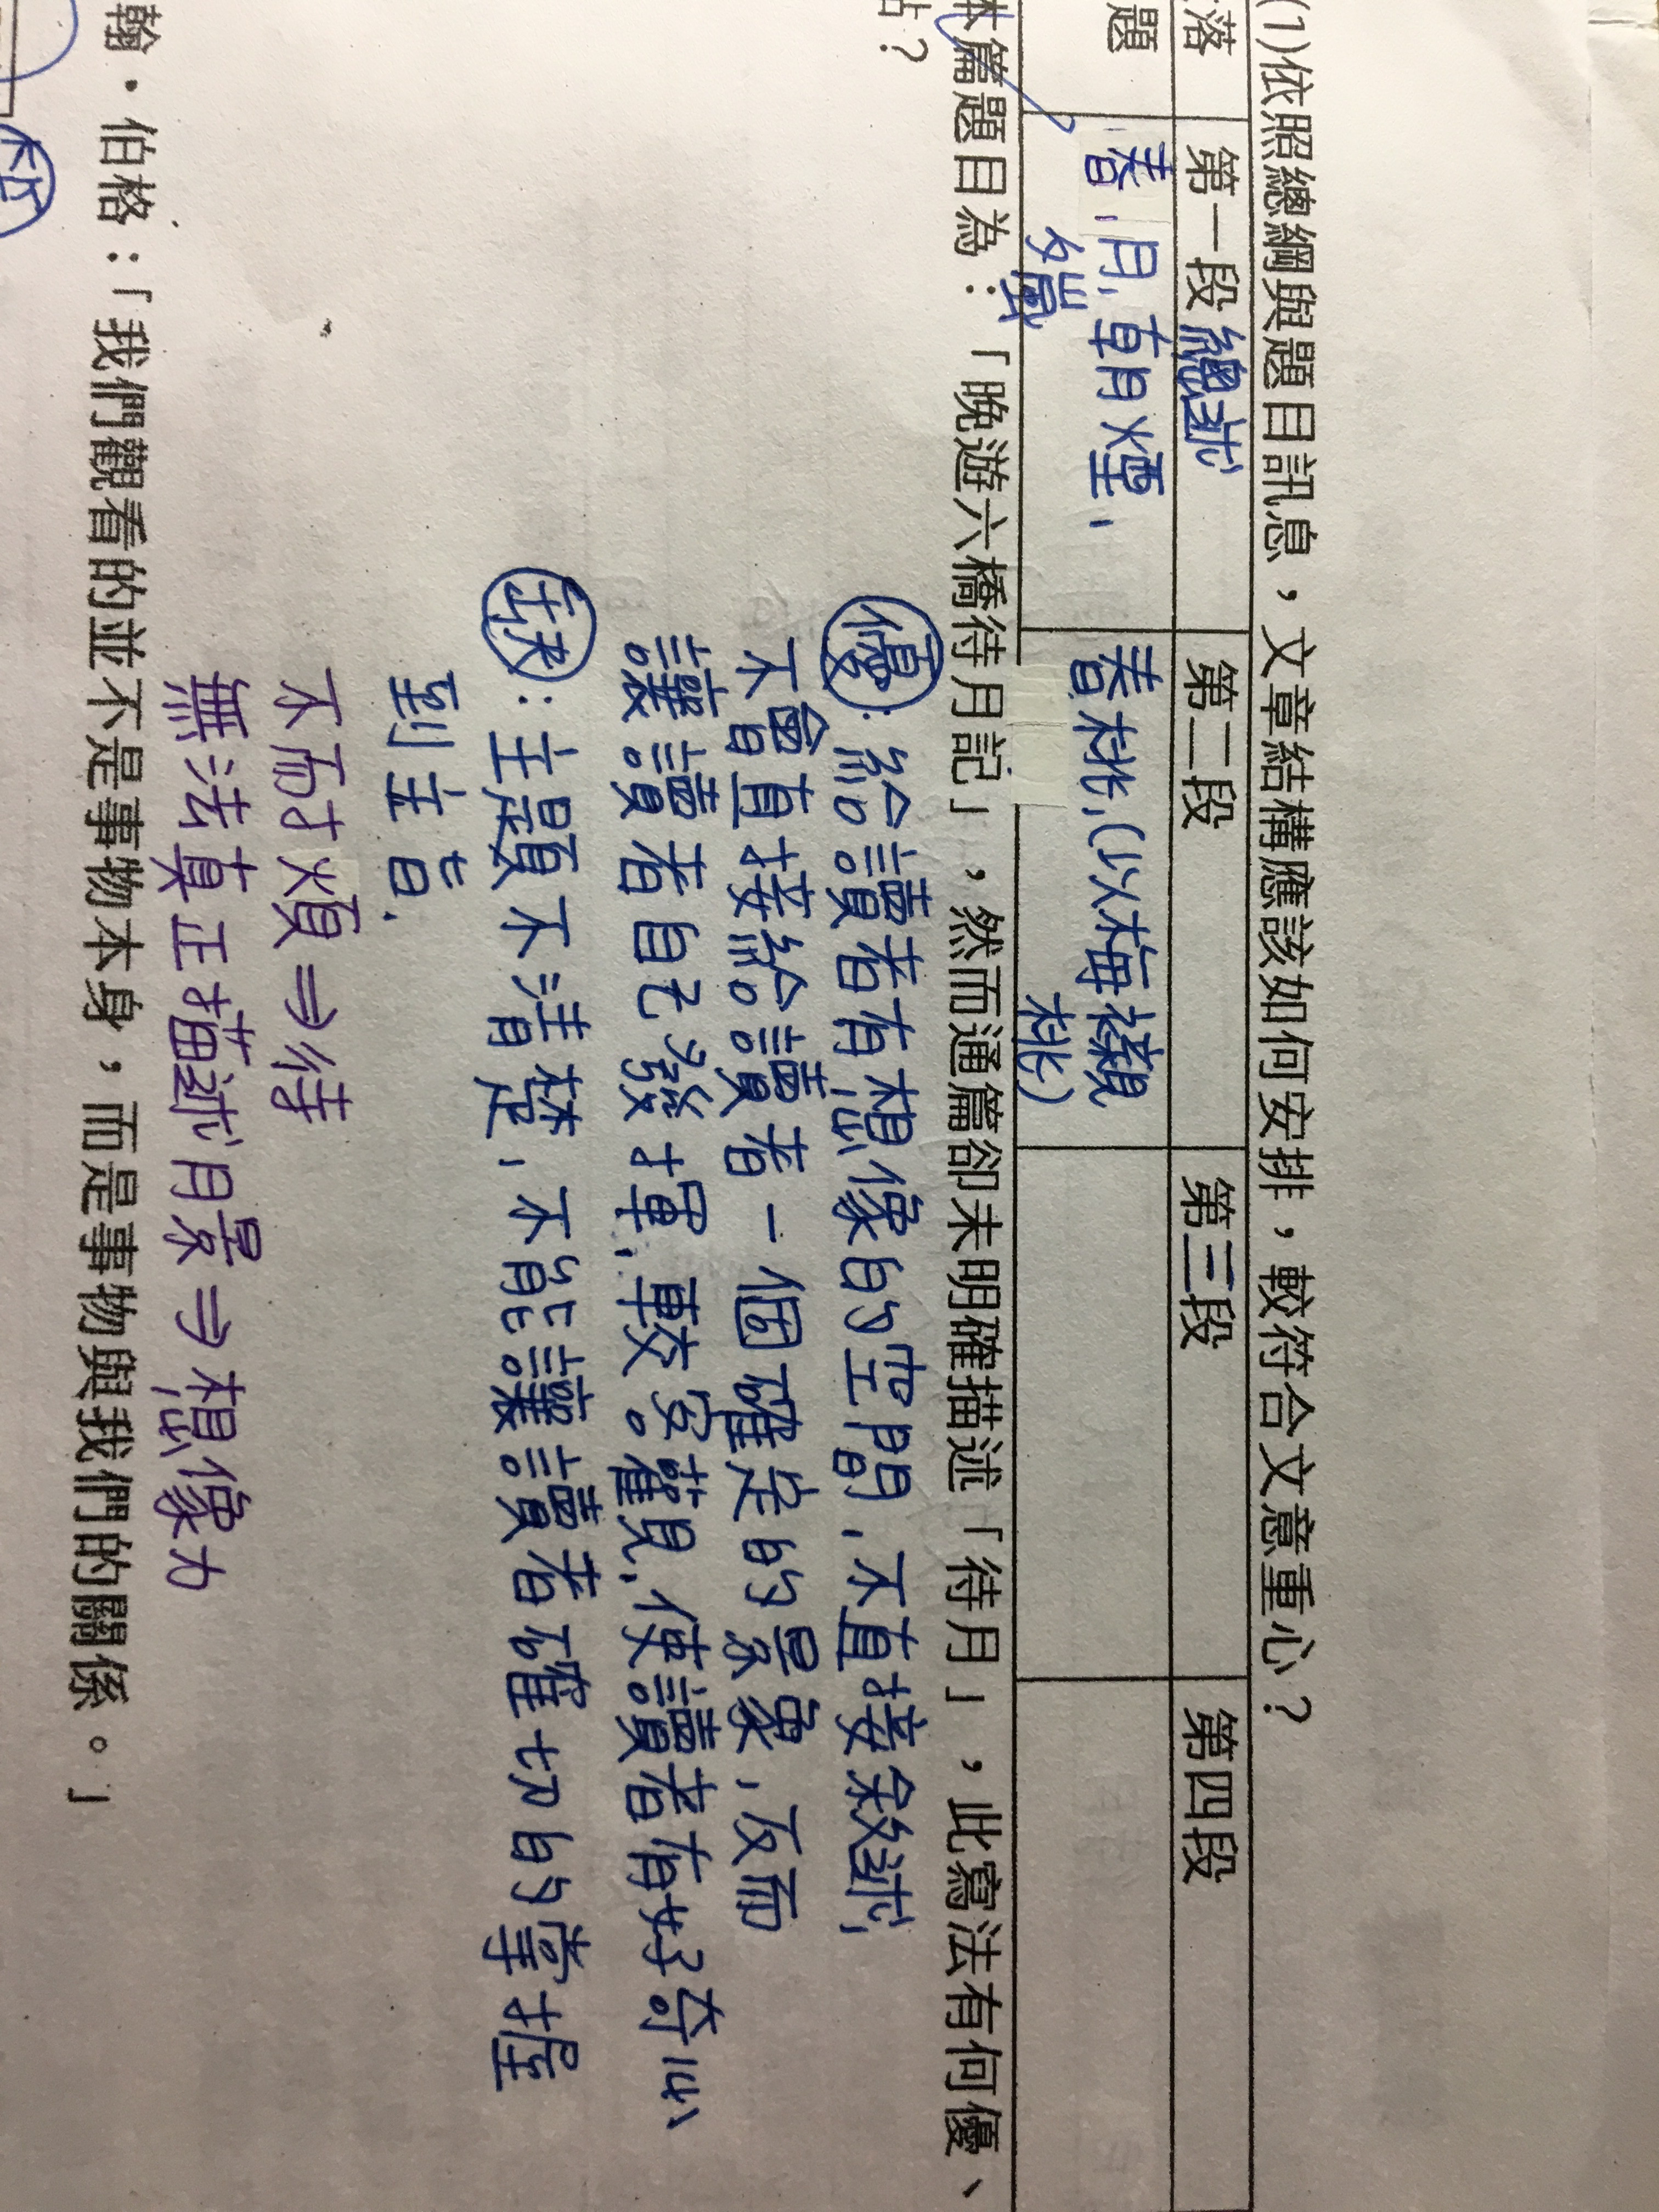 (1)依照總綱與題目訊息，文章結構應該如何安排，較符合文意重心？
落 第一段 總述 第二段 第三段 第四段
題 春、月、朝火煙、 春桃、(以梅襯
夕嵐 桃)
本篇題目為：「晚遊六橋待月記」，然而通篇卻未明確描述「待月」，此寫法有何優、
點？
優：給讀者有想像的空間，不直接敘述，
不會直接給讀者一個確定的景象，反而
讓讀者自己發揮、較客觀、使讀者有好奇心
缺：主題不清楚，不能讓讀者確切的掌握
到主旨.
不耐煩⇒待
無法真正描述月景⇒想像力
翰·伯格：「我們觀看的並不是事物本身，而是事物與我們的關係。」